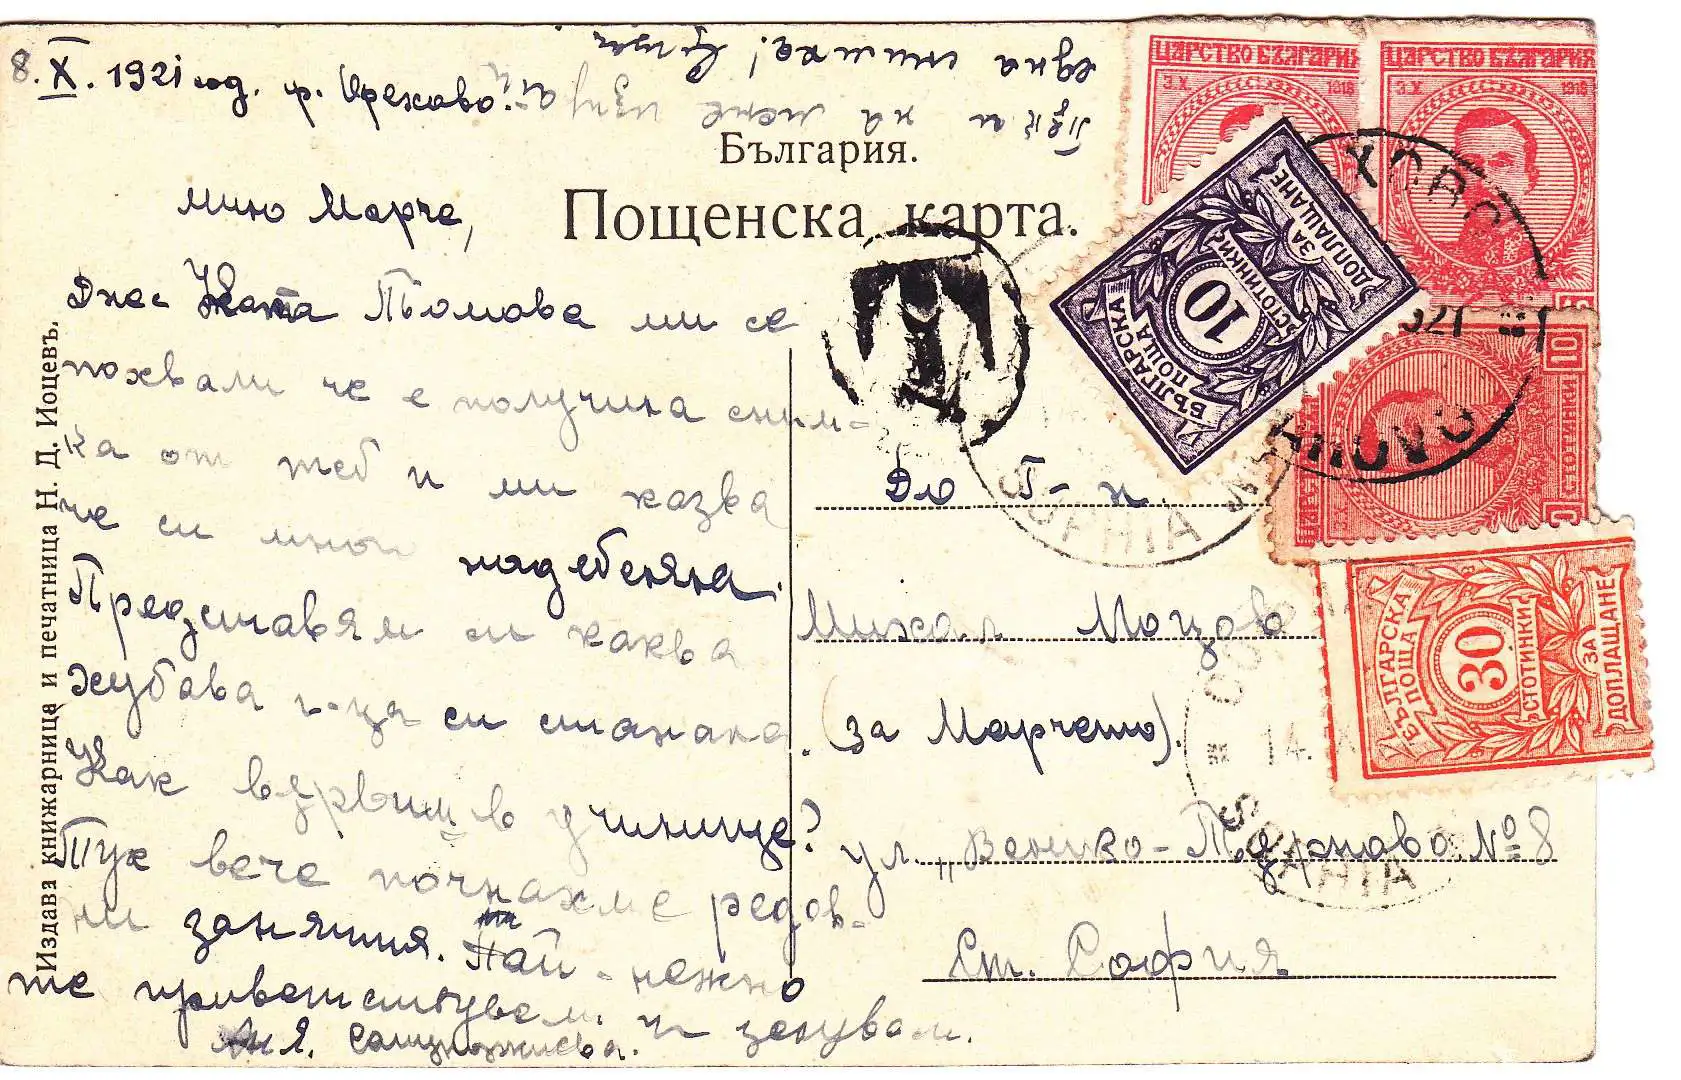 8. X. 1921 год. гр. Орехово.
Пък и на мене изпра-
ти една снимка!
България.
Пощенска карта.
Мило Марче,
Днес Ката Томова ми се
похвали че е получила сним-
ка от теб и ми казва
че си много надебеляла.
Представям си каква
хубава г-ца си станала.
Как вървиш в училище?
Тук вече почнахме редов-
ни занятия. Най-нежно
те приветствувам и целувам.
Издава книжарница и печатница Н. Д. Йоцевъ.
До Г-н
Михал Моцов
(за Марчето).
ул. „Велико-Търново № 8
Ст. София
ЦАРСТВО БЪЛГАРИЯ
3.X 1918
ЦАРСТВО БЪЛГАРИЯ
3.X 1918
БЪЛГАРСКА ПОЩА
10
СТОТИНКИ
ЗА ДОПЛАЩАНЕ
10 СТОТИНКИ
БЪЛГАРСКА ПОЩА
30
СТОТИНКИ
ЗА ДОПЛАЩАНЕ
T
SOPHIA
14. X
SOPHIA